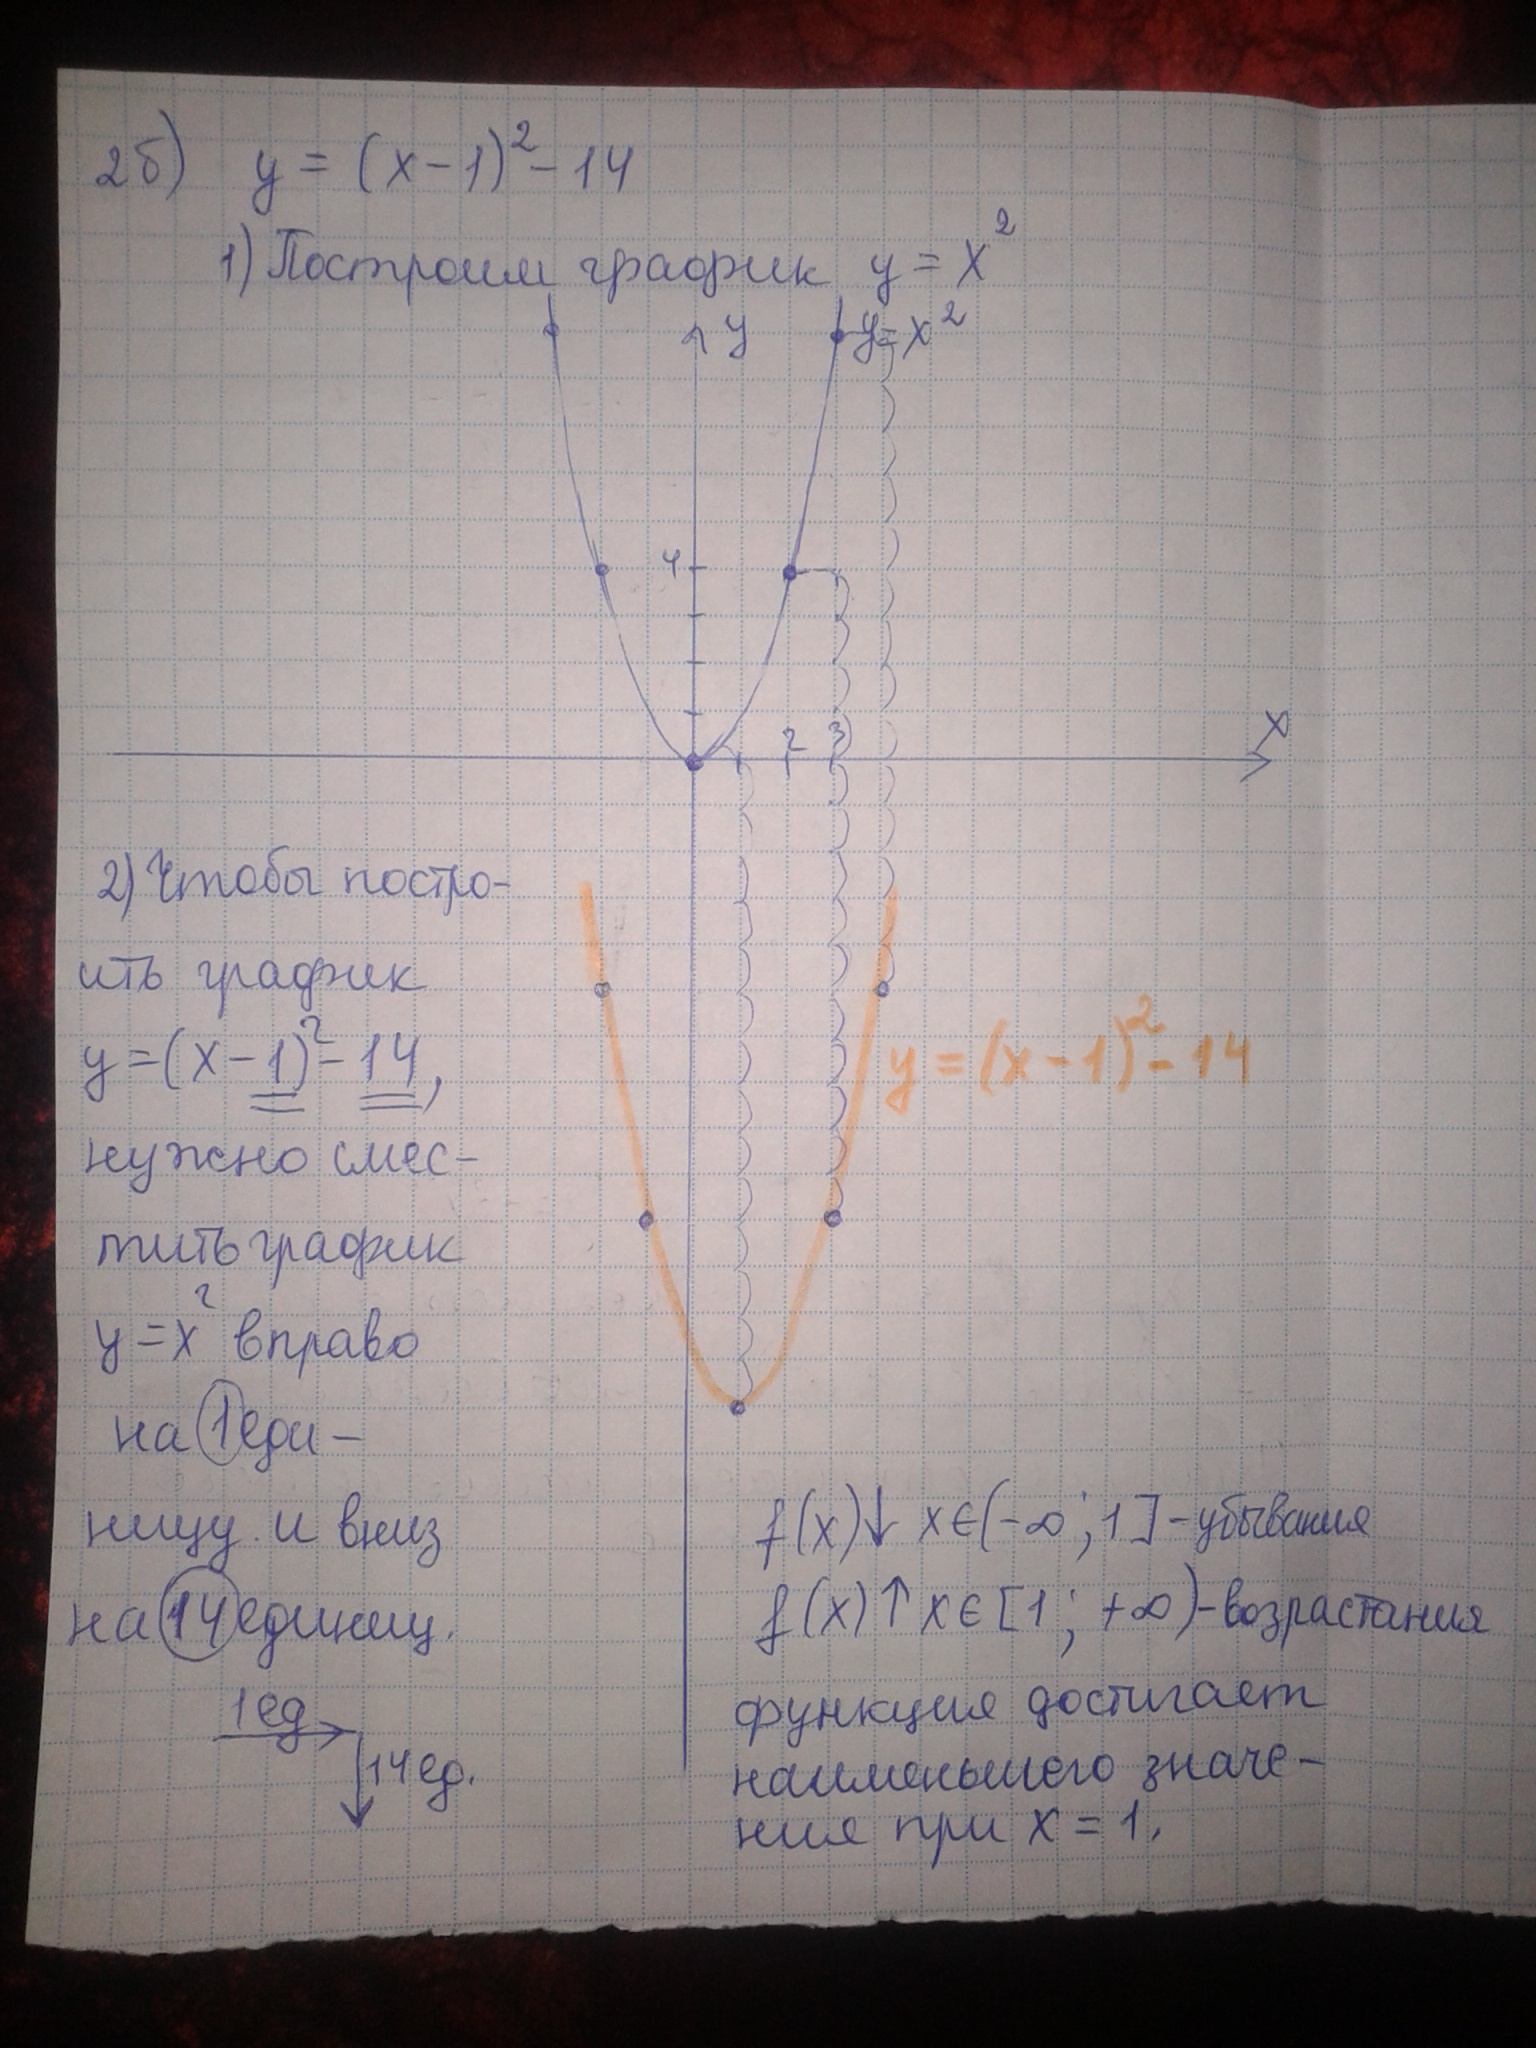 2б) y = (x-1)² - 14
1) Построим график y = x²
y
y = x²
4
2 3
x
2) Чтобы постро-
ить график
y = (x-1)² - 14,
нужно смес-
тить график
y = x² вправо
на 1 еди-
ницу и вниз
на 14 единиц.
1ед
14ед.
y = (x-1)² - 14
f(x)↓ x∈(-∞; 1] - убывания
f(x)↑ x∈[1; +∞) - возрастания
функция достигает
наименьшего значе-
ния при x = 1.